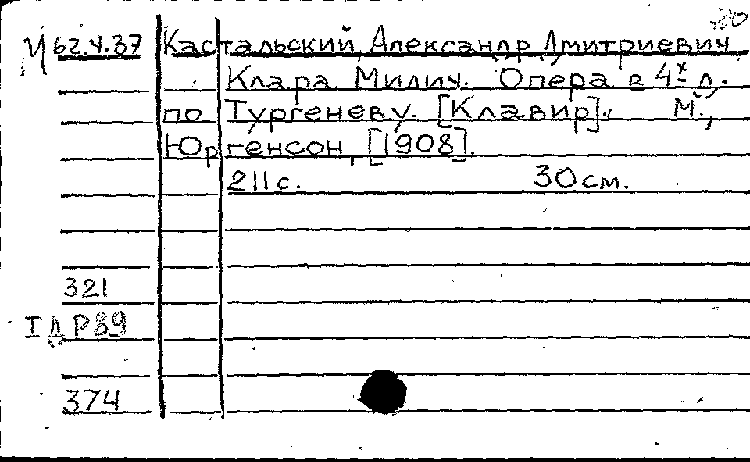 И 62.4.37 Кастальский, Александр Дмитриевич
Клара Милич. Опера в 4х д.
по Тургеневу. [Клавир]. М.,
Юргенсон, [1908].
211 с. 30 см.
321
I д Р89
374